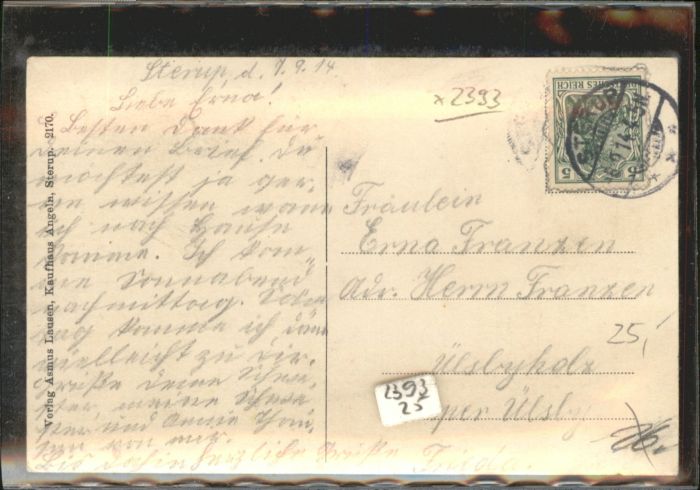 Sterup, d. 7.9.14.
Liebe Erna!
Besten Dank für
deinen Brief. Du
möchtest ja ger-
ne wissen wann
ich nach Hause
komme. Ich kom-
me Sonnabend
nachmittag.
tag komme ich dann
vielleicht zu dir.
Grüße deine Schwe-
ster meine Schwe-
ster und Annie
von mir.
Bis dahin herzliche Grüße
Frieda.
Verlag Asmus Lausen, Kaufhaus Angeln, Sterup. 2170.
x 2393
DEUTSCHES REICH
5 5
STERUP
Fräulein
Erna Franzen
Adr. Herrn Franzen
Ülsbyholz
per Ülsby
25,-
2393
25